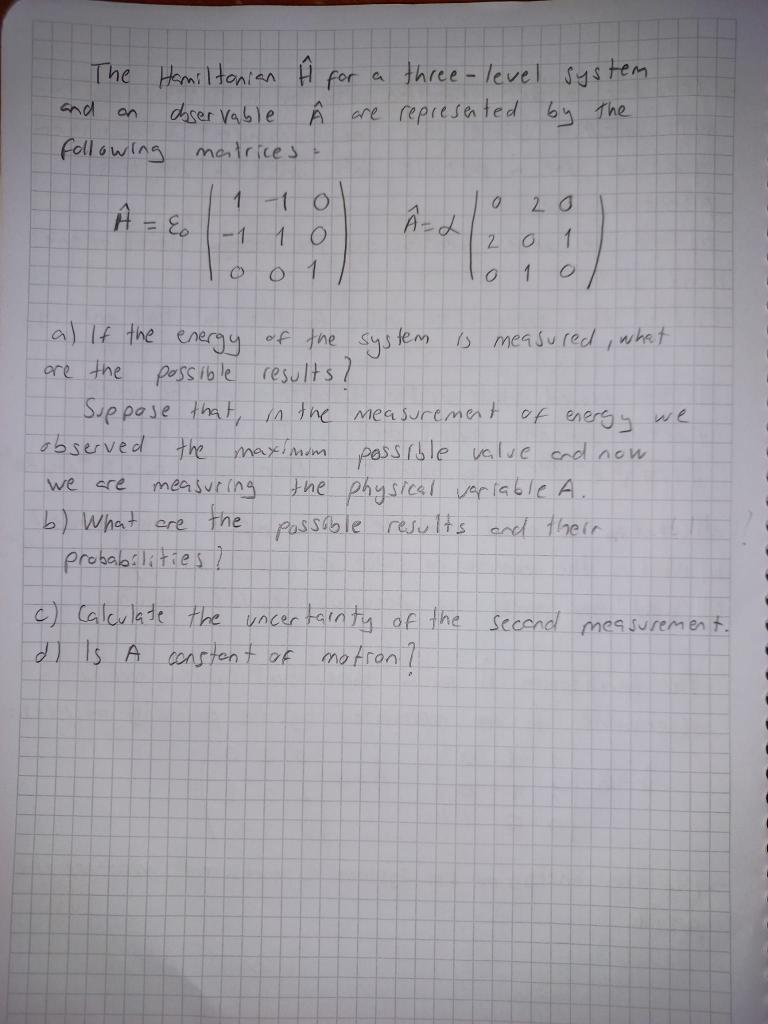 The Hamiltonian Ĥ for a three-level system
and an observable Â are represented by the
following matrices:
Ĥ = ε₀ ( 1 -1 0 ; -1 1 0 ; 0 0 1 )   Â = α ( 0 2 0 ; 2 0 1 ; 0 1 0 )
a) If the energy of the system is measured, what
are the possible results?
Suppose that, in the measurement of energy we
observed the maximum possible value and now
we are measuring the physical variable A.
b) What are the possible results and their
probabilities?
c) Calculate the uncertainty of the second measurement.
d) Is A constant of motion?